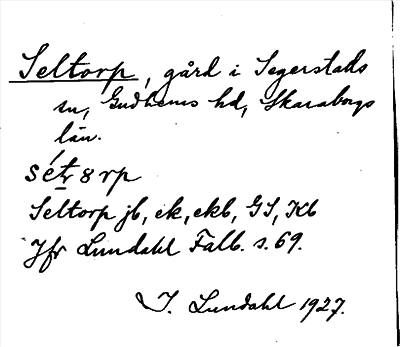 Seltorp, gård i Segerstads
sn, Gudhems hd, Skaraborgs
län.
sétr8rp
Seltorp jb, ek, ekb, GS, Kb
Jfr Lundahl Falb. s. 69.
I. Lundahl 1927.